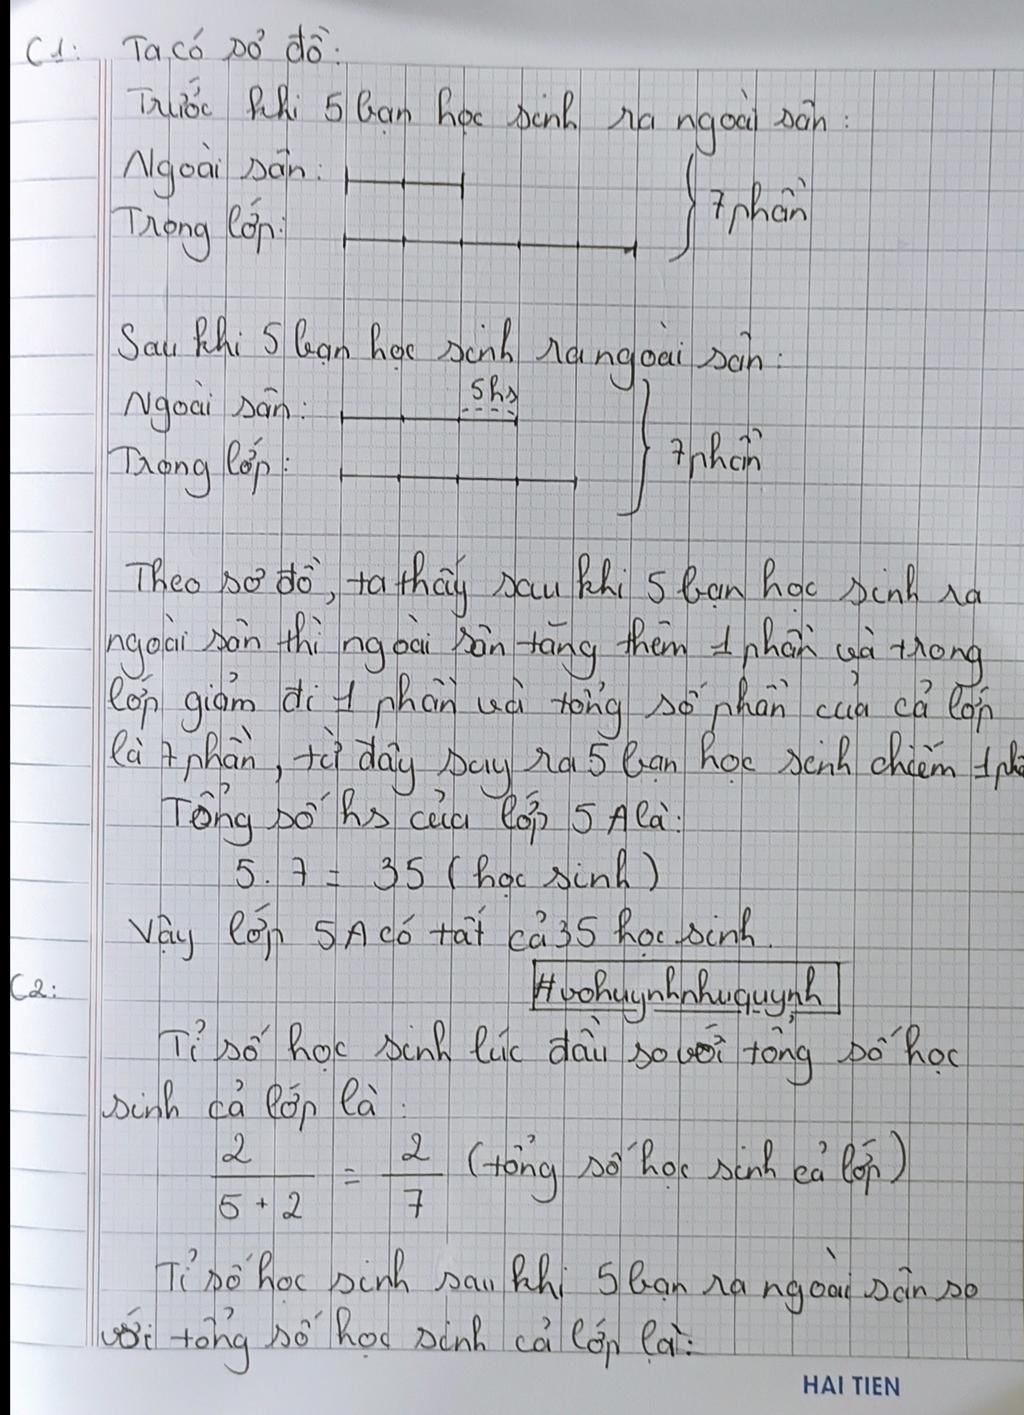 C1: Ta có sơ đồ:
Trước khi 5 bạn học sinh ra ngoài sân:
Ngoài sân:
7 phần
Trong lớp:
Sau khi 5 bạn học sinh ra ngoài sân:
5hs
Ngoài sân:
7 phần
Trong lớp:
Theo sơ đồ, ta thấy sau khi 5 bạn học sinh ra
ngoài sân thì ngoài sân tăng thêm 1 phần và trong
lớp giảm đi 1 phần và tổng số phần của cả lớp
là 7 phần, từ đây suy ra 5 bạn học sinh chiếm 1 phầ
Tổng số hs của lớp 5A là:
5.7 = 35 (học sinh)
Vậy lớp 5A có tất cả 35 học sinh.
#vohuynhnhuquynh
C2:
Tỉ số học sinh lúc đầu so với tổng số học
sinh cả lớp là:
2/(5+2) = 2/7 (tổng số học sinh cả lớp)
Tỉ số học sinh sau khi 5 bạn ra ngoài sân so
với tổng số học sinh cả lớp là:
HAI TIEN